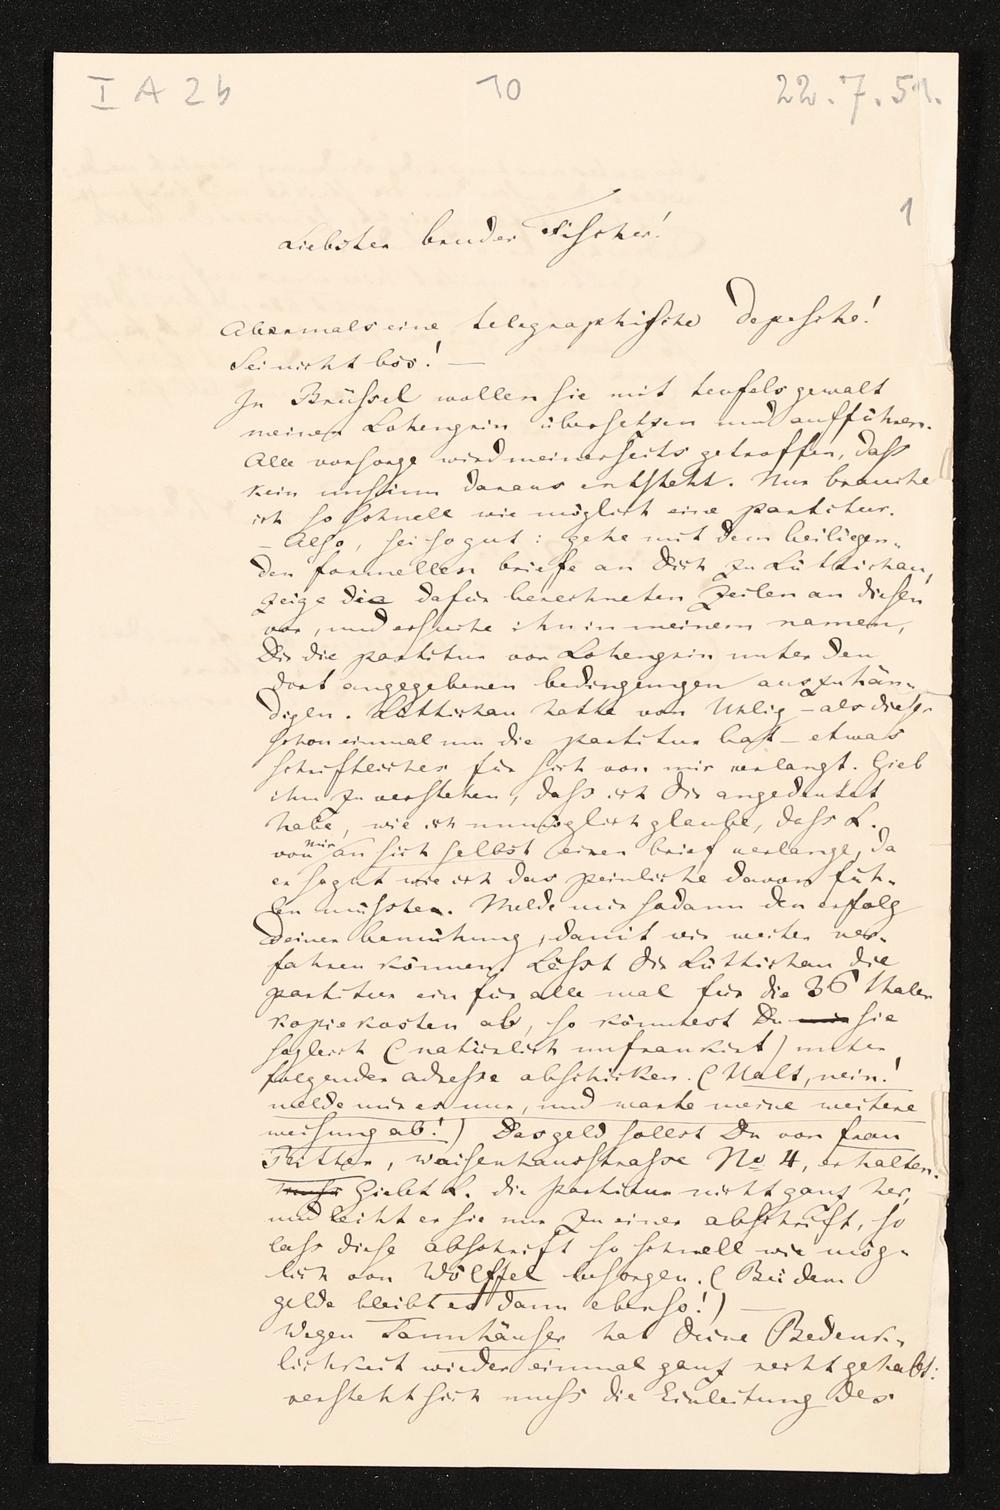 I A 2b 10 22.7.51.
1
Liebster bruder Fischer!
Abermals eine telegraphische depesche!
Sei nicht bös! —
In Brüssel wollen sie mit teufels gewalt
meinen Lohengrin übersetzen und aufführen.
Alle vorsorge wird meinerseits getroffen, dass
kein unsinn daraus entsteht. Nur brauche
ich so schnell wie möglich eine partitur.
— Also, sei so gut: gehe mit dem beiliegen-
den formellen briefe an Dich zu Lüttichau,
zeige die dafür berechneten zeilen an diesen
vor, und ersuche ihn in meinem namen,
Dir die partitur von Lohengrin unter den
dort angegebenen bedingungen auszuhän-
digen. Lüttichau hatte von Uhlig – als dieser
schon einmal um die partitur bat – etwas
schriftliches für sich von mir verlangt. Gieb
ihm zu verstehen, dass ich Dir angedeutet
habe, wie ich unmöglich glaube, dass L.
von mir an sich selbst einen brief verlange, da
er so gut wie ich das peinliche davon füh-
len müsste. Melde mir sodann den erfolg
Deiner bemühung, damit wir weiter ver-
fahren können. Lässt Dir Lüttichau die
partitur ein für alle mal für die 36 thaler
kopiekosten ab, so könntest Du sie
sogleich (natürlich unfrankirt) unter
folgender adresse abschicken. (Halt, nein!
melde mir es nur, und warte meine weitere
weisung ab!) Das geld sollst Du von frau
Ritter, Waisenhausstrasse No 4, erhalten.
Giebt L. die partitur nicht ganz her,
und leiht er sie nur zu einer abschrift, so
lass diese abschrift so schnell wie mög-
lich von Wölffel besorgen. (Bei dem
gelde bleibt es dann ebenso!) —
Wegen Tannhäuser hat Deine Bedenk-
lichkeit wieder einmal ganz recht gehabt:
versteht sich muss die Einleitung des